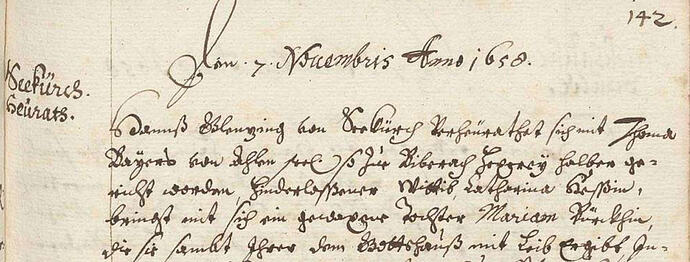 142.
Den. 7. Novembris Anno 1658.
Seekürch.
Heurath.
Hannß Blenzing von Seekürch verheürathet sich mit Thoma
Bayers von Ahlen sel. so zue Biberach Hexerey halber ge-
richt worden, hinderlaßener Wittib, Catharina Heßin,
bringt mit sich ein gewaxene Tochter Mariam Bürckhin,
die sie sambt Ihrer dem Gottshauß mit Leib Ergibt, In-